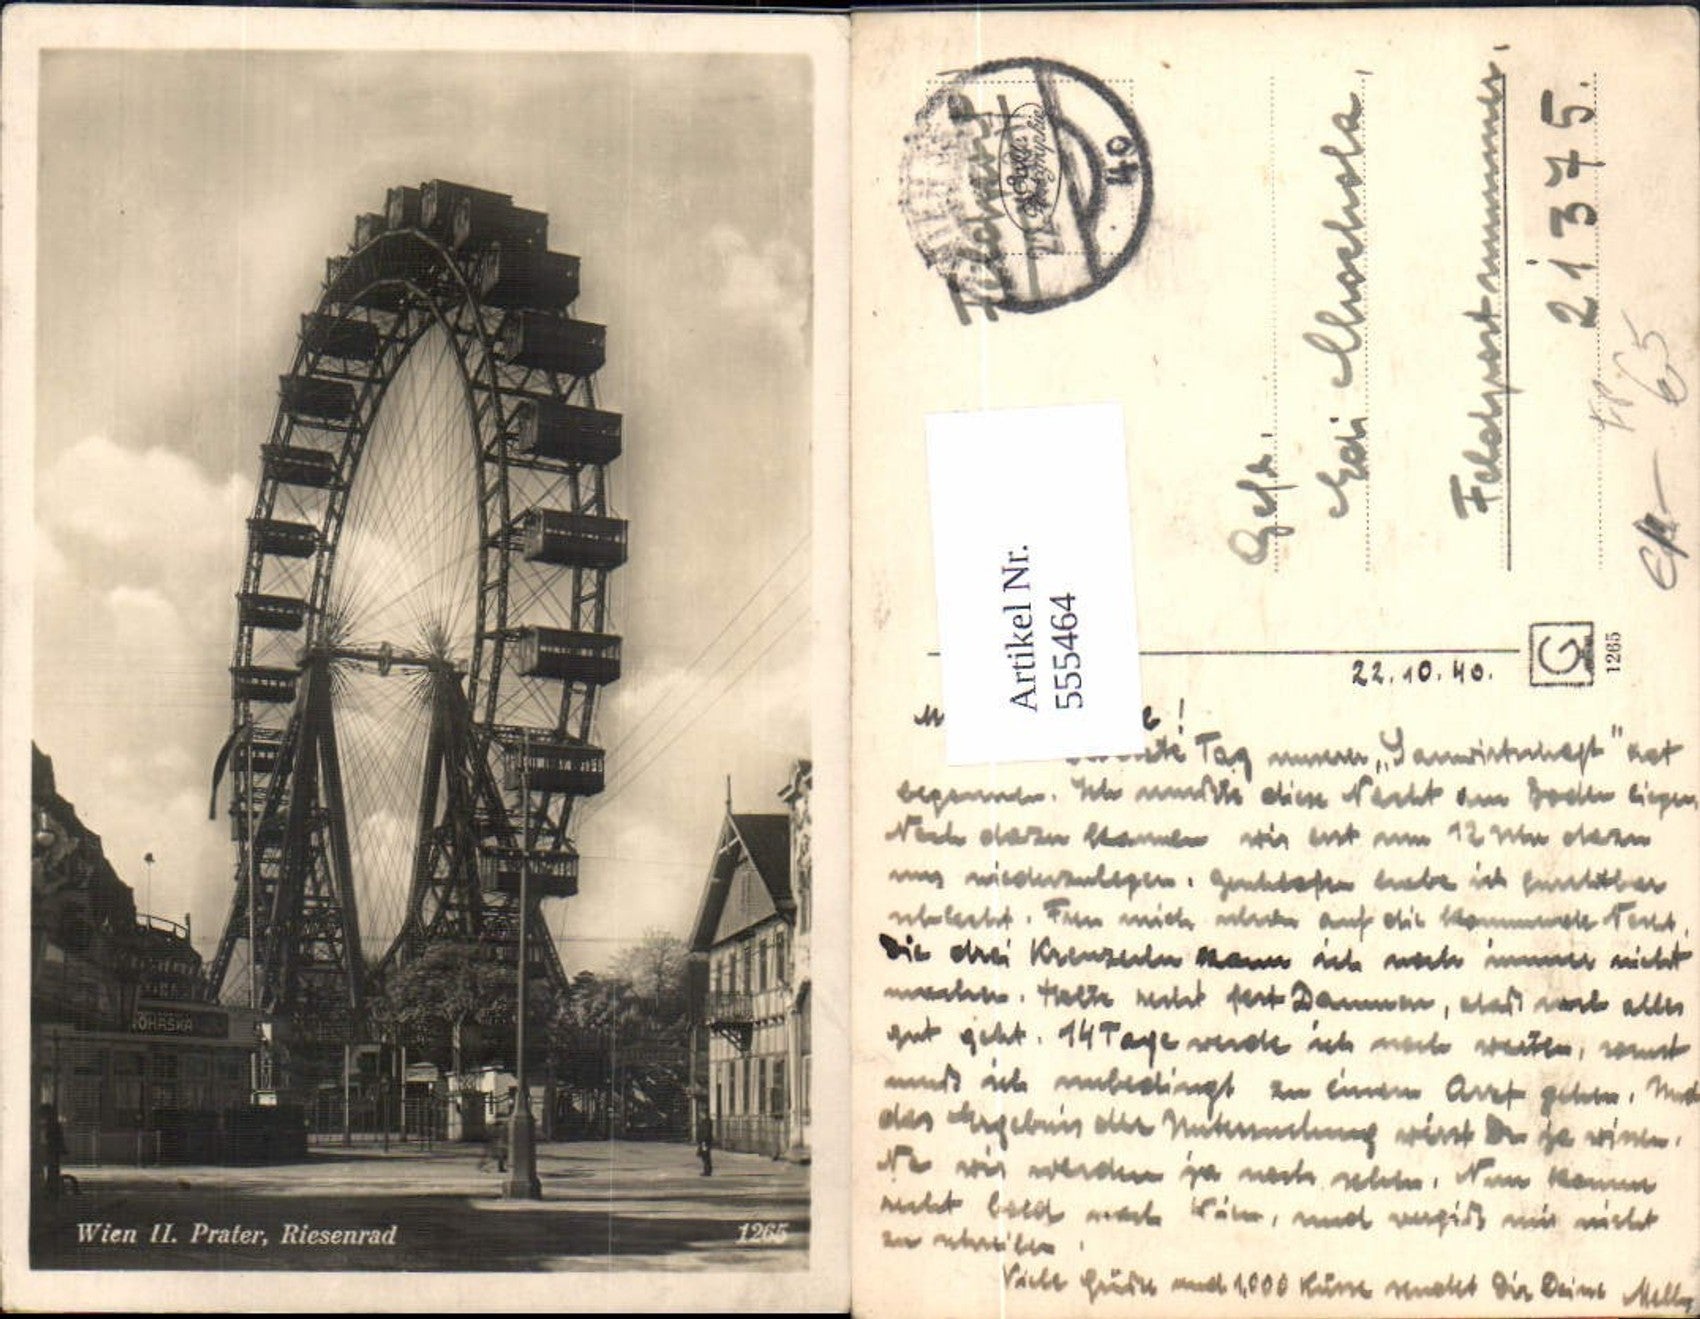 OHASKA
Wien II. Prater, Riesenrad
1265
Feldpost
40
Gefr.
Edi
Feldpostnummer
21375.
65
Artikel Nr.
555464
G
1265
22.10.40.
!
Tag unserer „Sauwirtschaft" hat
begonnen. Ich mußte diese Nacht am Boden liegen
Noch dazu kamen wir erst um 12 Uhr dazu
uns niederzulegen. Geschlafen habe ich furchtbar
schlecht. Freu mich schon auf die kommende Nacht.
Die drei Kreuzerln kann ich noch immer nicht
machen. Halte recht fest Daumen, daß noch alles
gut geht. 14 Tage werde ich noch warten, sonst
muß ich unbedingt zu einem Arzt gehen. Und
das Ergebnis der Untersuchung wirst Du ja wissen.
Na wir werden ja noch sehen. Nun komm
recht bald nach Wien, und vergiß mir nicht
zu schreiben.
Viele Grüße und 1,000 Küsse sendet Dir Deine Melly